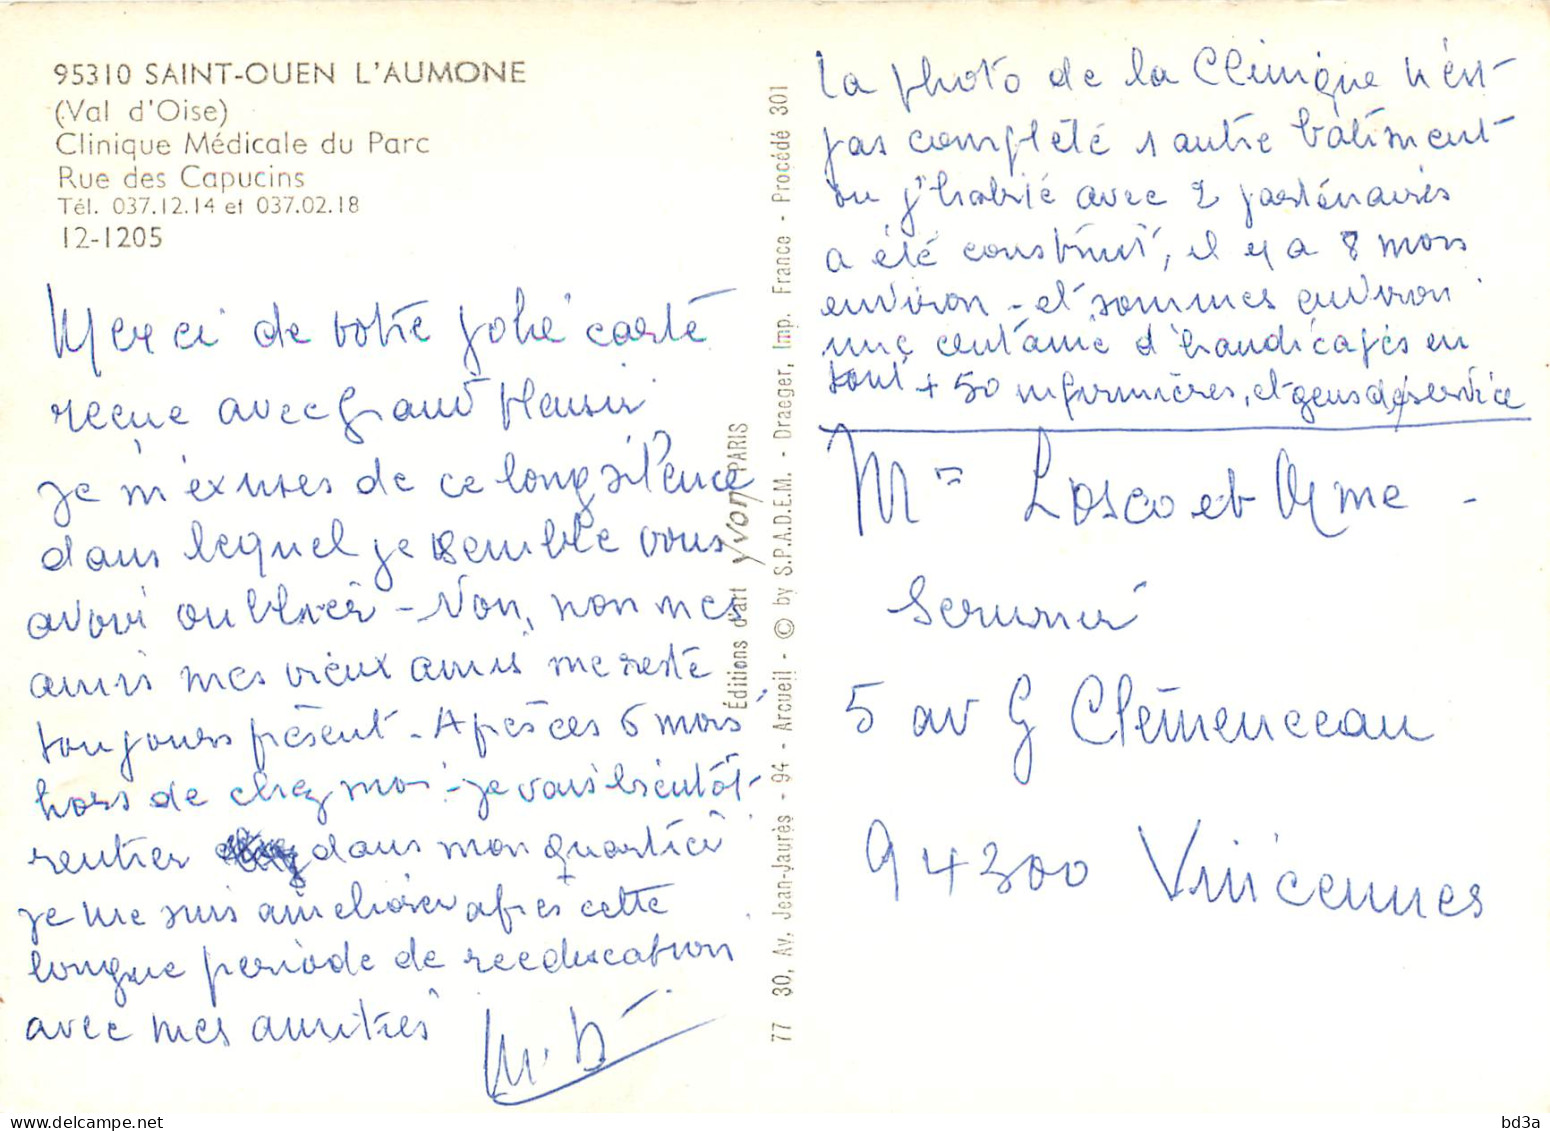 95310 SAINT-OUEN L'AUMONE
(Val d'Oise)
Clinique Médicale du Parc
Rue des Capucins
Tél. 037.12.14 et 037.02.18
12-1205
Merci de votre jolie carte
reçue avec grand plaisir
je m'excuses de ce long silence
dans lequel je semble vous
avoir oublier - Non, non mes
amis mes vieux amis me reste
toujours présent - Après ces 6 mois
hors de chez moi - je vais bientôt
rentrer dans mon quartier
je me suis améliorer après cette
longue periode de reeducation
avec mes amitiés
M. B
Éditions d'art yvon PARIS
77 30, Av. Jean-Jaurès - 94 - Arcueil - © by S.P.A.D.E.M. - Draeger, Imp. France - Procédé 301
La photo de la Clinique n'est
pas complété 1 autre bâtiment
ou j'habite avec 2 partenaires
a été construit, il y a 8 mois
environ - et sommes environ
une centaine d'handicapés en
tout + 50 infirmières, et gens de service
Mr Losco et Mme -
5 av G Clémenceau
94300 Vincennes
bd3a